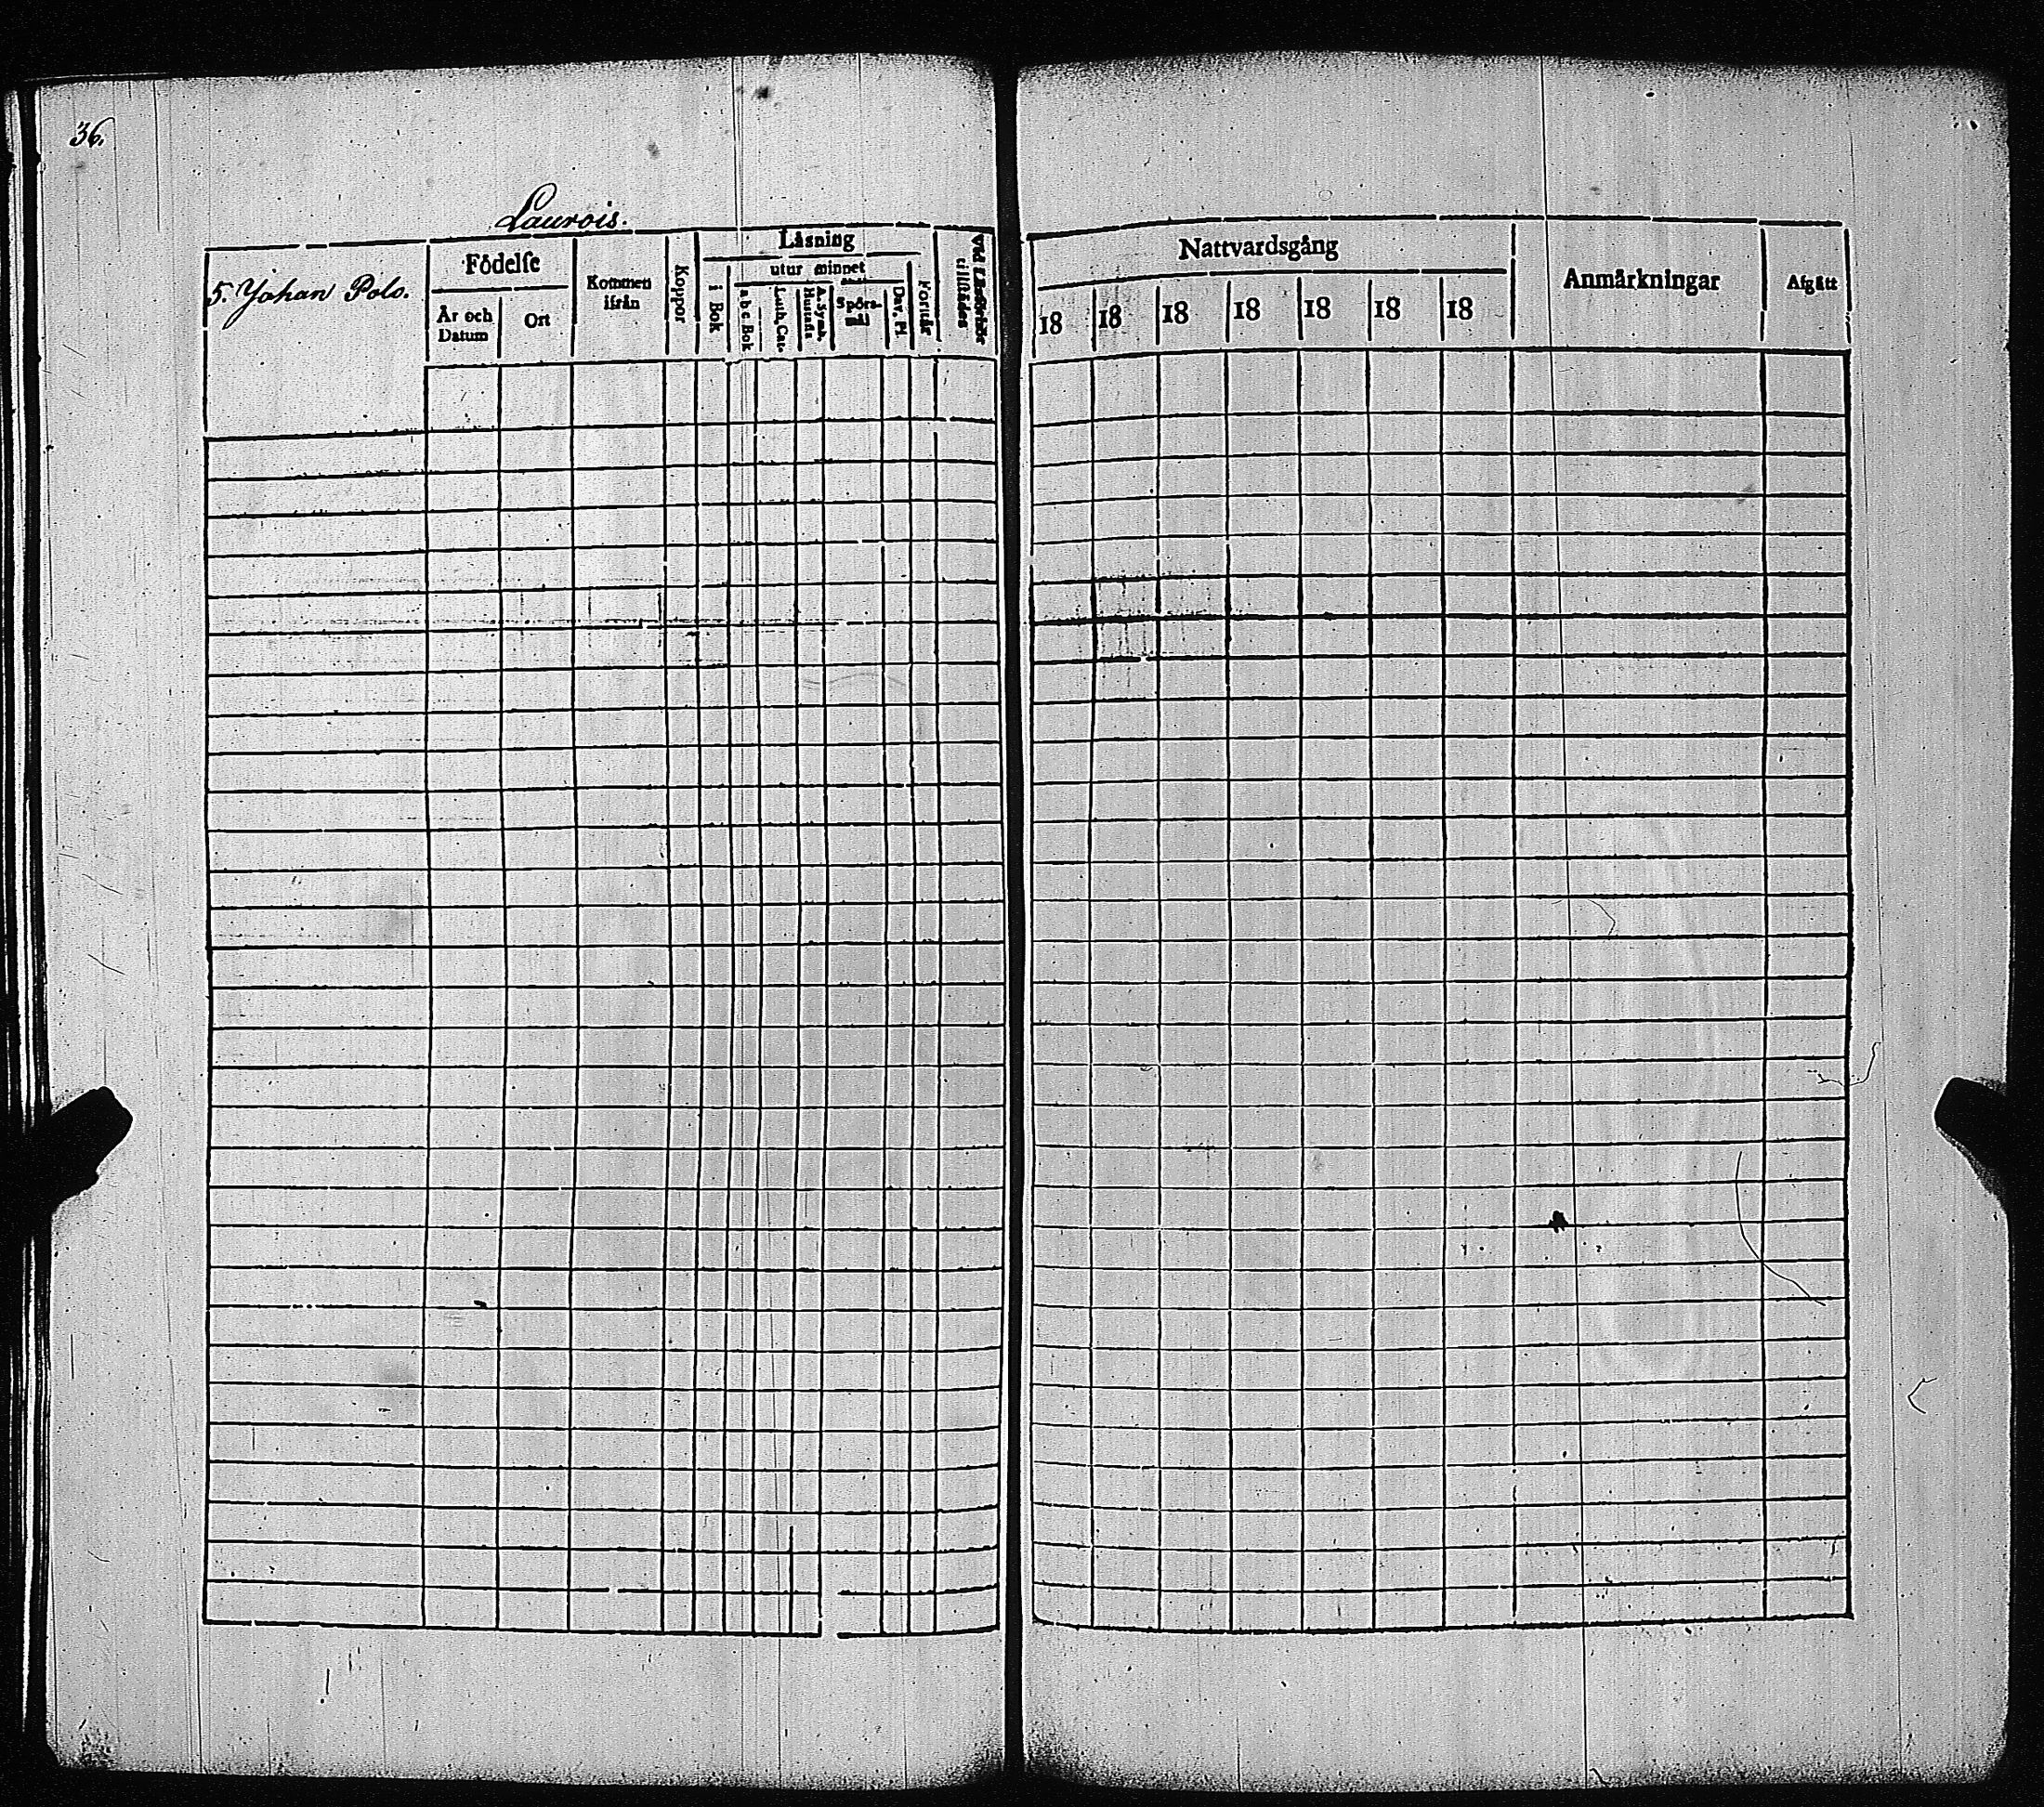 36.
Laurois.
5. Johan Polo.
Födelse
År och Datum
Ort
Kommen ifrån
Koppor
Läsning
i Bok
utur minnet
a b c. Bok
Luth. Cat.
A. Symb. Hustafla
Spörs-mål
Dav. Pf.
Förstår
Vid Läseförhör tillstädes
Nattvardsgång
18 18 18 18 18 18 18
Anmärkningar
Afgått